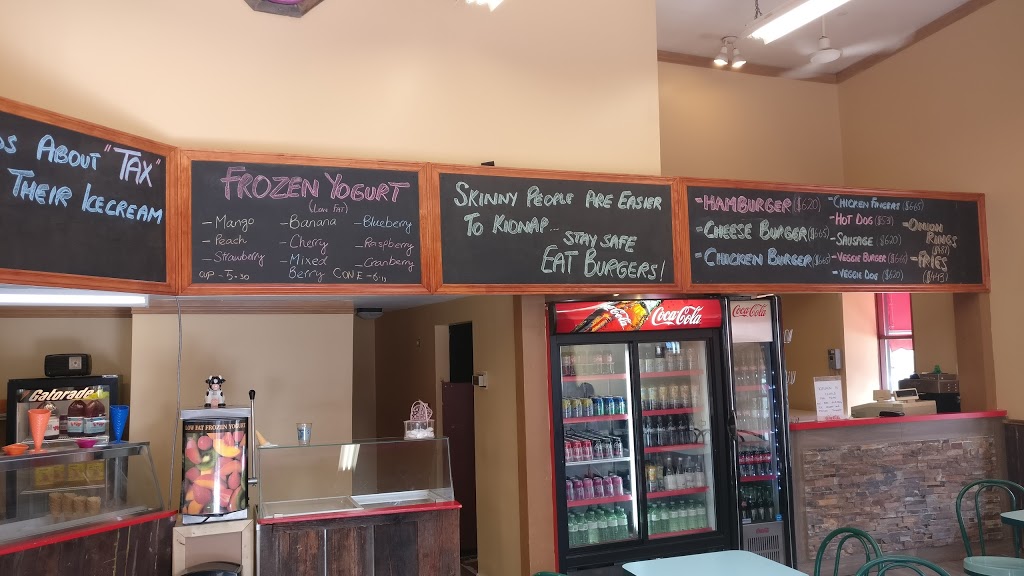 DS ABOUT "TAX"
THEIR ICECREAM
FROZEN YOGURT
(LOW FAT)
- Mango
- Peach
- Strawberry
- Banana
- Cherry
- Mixed
Berry
- Blueberry
- Raspberry
- Cranberry
CUP - 5.30
CONE - 6.11
SKINNY PEOPLE ARE EASIER
TO KIDNAP...
STAY SAFE
EAT BURGERS!
- HAMBURGER ($6.20)
- CHEESE BURGER ($6.65)
- CHICKEN BURGER
- CHICKEN FINGERS ($6.65)
- HOT DOG
- SAUSAGE ($6.20)
- VEGGIE BURGER ($6.65)
- VEGGIE DOG ($6.20)
- ONION
RINGS
- FRIES
Coca-Cola
Coca-Cola
Gatorade
LOW FAT FROZEN YOGURT